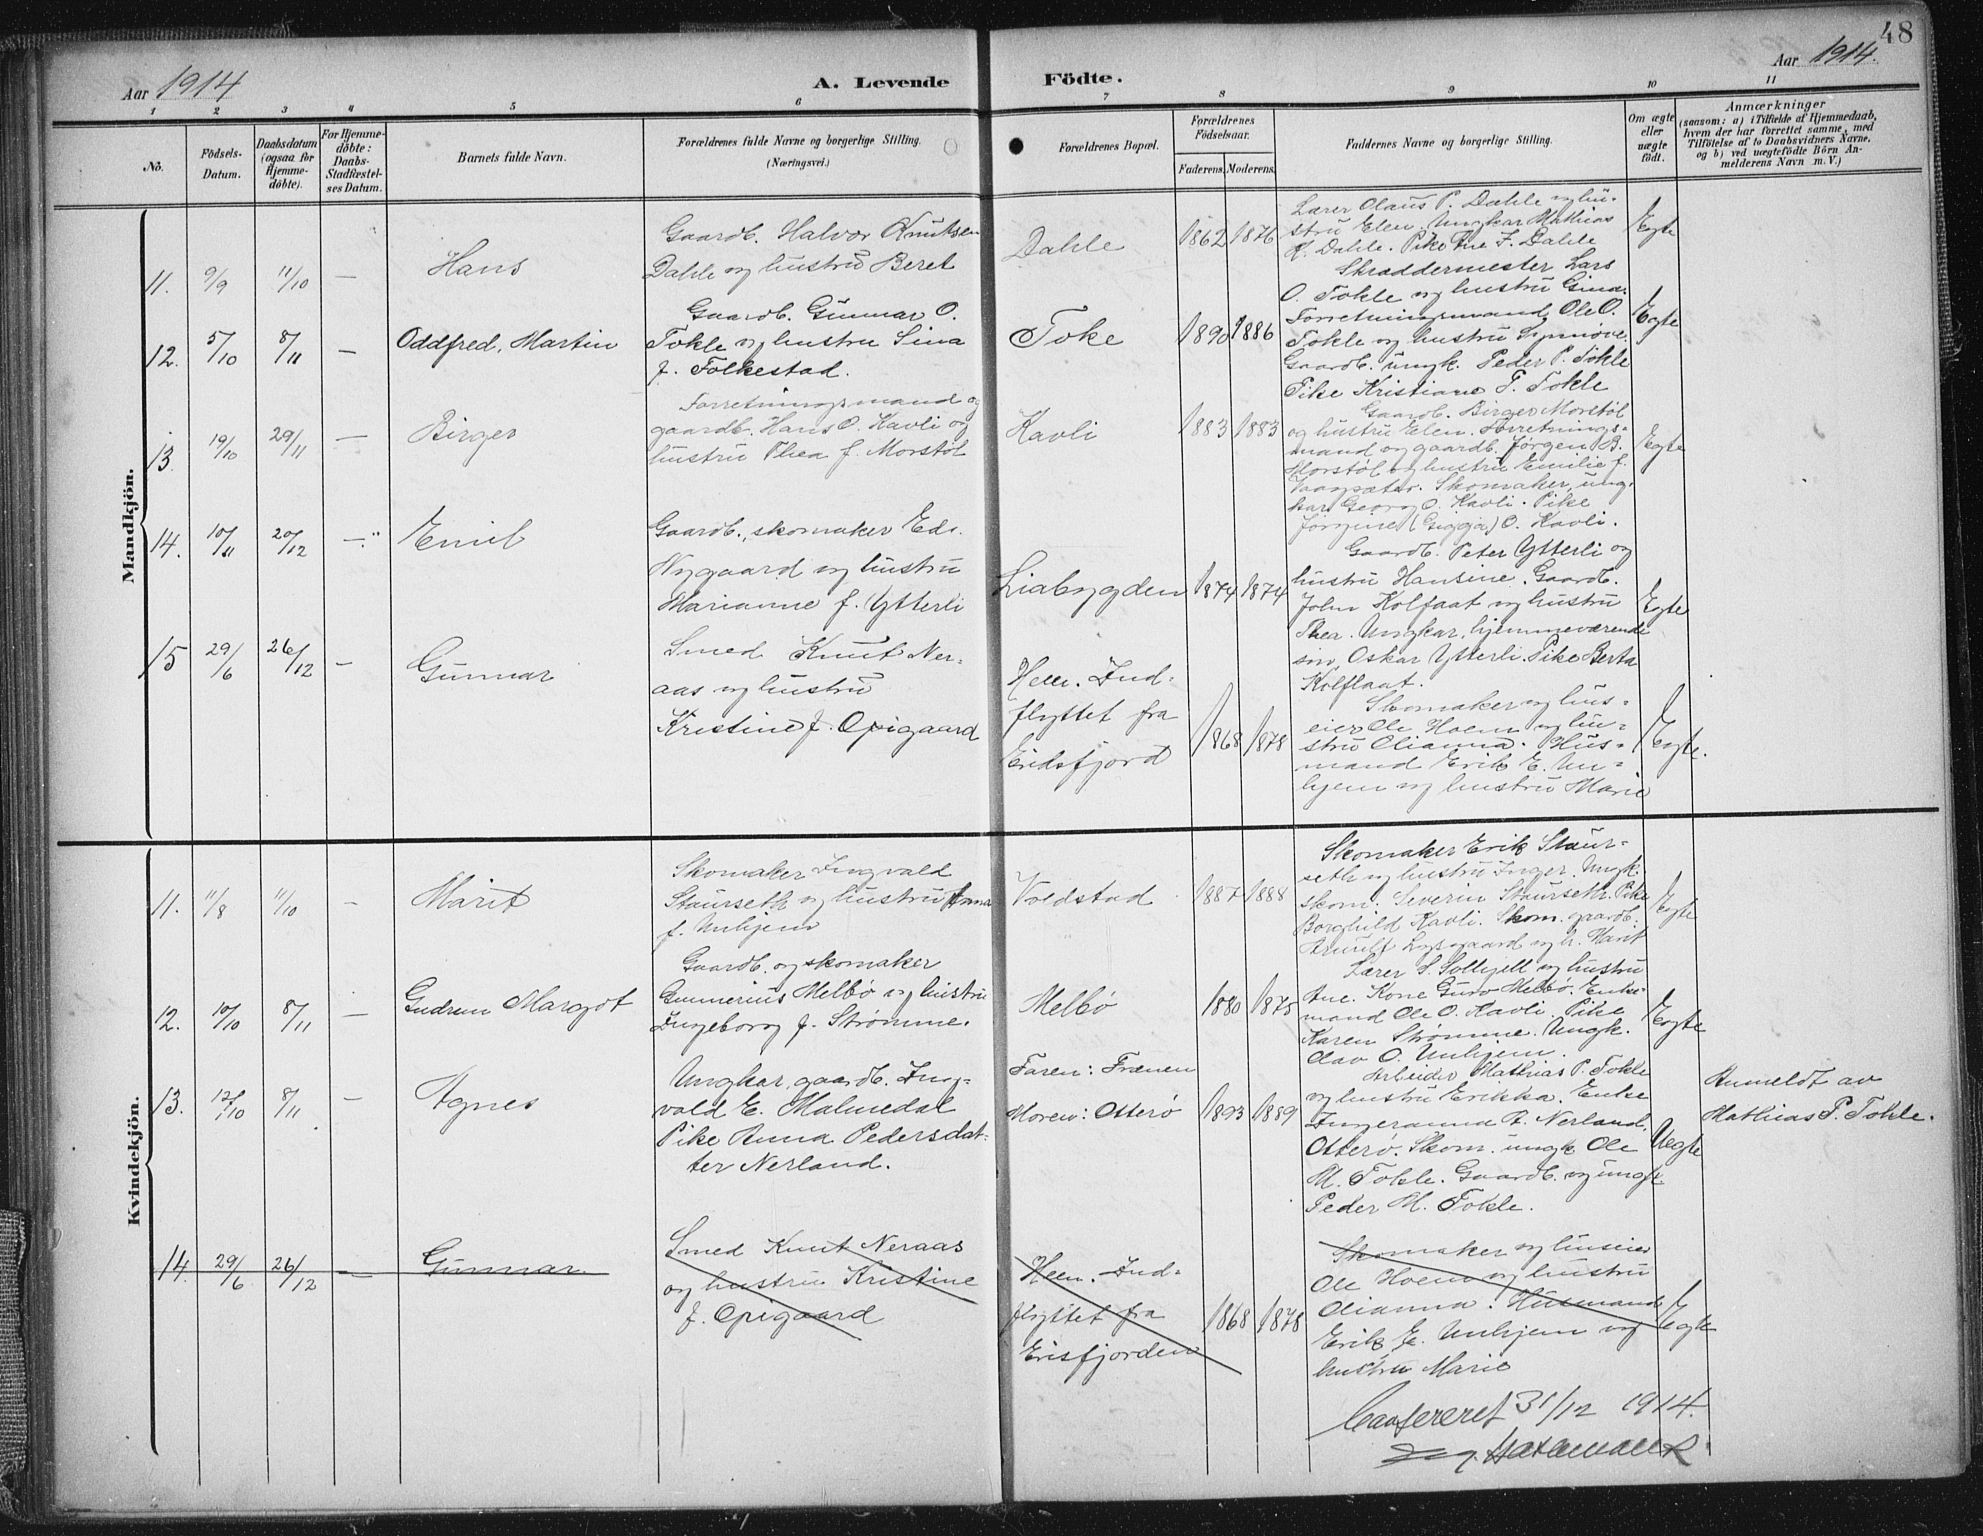 48
Aar 1914
A. Levende Födte.
Aar 1914.
1 2 3 4 5 6 7 8 9 10 11
No.
Födsels-Datum.
Daabsdatum (ogsaa for Hjemme-döbte).
For Hjemme-döbte: Daabs-Stadfæstelses Datum.
Barnets fulde Navn.
Forældrenes fulde Navne og borgerlige Stilling. (Næringsvei.)
Forældrenes Bopæl.
Forældrenes Födselsaar.
Faderens. Moderens.
Faddernes Navne og borgerlige Stilling.
Om ægte eller uægte födt.
Anmærkninger
(saasom: a) i Tilfælde af Hjemmedaab,
hvem der har forrettet samme, med
Tilföielse af to Daabsvidners Navne,
og b) ved uægtefödte Börn An-
melderens Navn m. V.)
Mandkjön.
11. 9/9 11/10 — Hans
Gaardb. Halvor Knutsen
Dahle og hustru Beret
Dahle 1862 1876
Lærer Olaus P. Dahle og hu-
stru Elen. Ungkar Mathias
H. Dahle. Pike Ane F. Dahle
Egte
12. 5/10 8/11 — Oddfred, Martin
Gaardb. Gunnar O.
Tokle og hustru Sina
f. Folkestad.
Toke 1890 1886
Skræddermester Lars
O. Tokle og hustru Gina.
Forretningsmand Ole O.
Tokle og hustru Synnøve.
Gaardb. ungk. Peder P. Tokle
Pike Kristiane P. Tokle
Egte
13. 19/10 29/11 — Birger
Forretningsmand og
gaardb. Hans O. Kavli og
hustru Thea f. Morstøl
Kavli 1883 1883
Gaardb. Birger Morstøl
og hustru Elen. Forretnings-
mand og gaardb. Jørgen B.
Morstøl og hustru Emilie f.
Vaagsæter. Skomaker, ung-
kar Georg O. Kavli. Pike
Jørgine (Gigga) O. Kavli.
Egte
14. 10/11 20/12 — Emil
Gaardb., skomaker Edv.
Nygaard og hustru
Marianne f. Ytterli
Liabygden 1874 1874
Gaardb. Peter Ytterli og
hustru Hansine. Gaardb.
John Kolflaat og hustru
Thea. Ungkar, hjemmeværende
søn, Oskar Ytterli. Pike Berta
Kolflaat.
Egte
15 29/6 26/12 — Gunnar
Smed Knut Ner-
aas og hustru
Kristine f. Opigaard
Heen. Ind-
flyttet fra
Eridsfjord
1868 1878
Skomaker og hus-
eier Ole Hoem og hu-
stru Olianna. Hus-
mand Erik E. Un-
hjem og hustru Marie
Egte.
Kvindekjön.
11. 11/8 11/10 — Marit
Skomaker Ingvald
Staurseth og hustru Anna
f. Unhjem
Voldstad 1887 1888
Skomaker Erik Staur-
seth og hustru Inger. Ungk.
skom. Severin Staurseth. Pike
Borghild Kavli. Skom. gaardb.
Arnulf Lysgaard og h. Marit
Egte
12. 10/10 8/11 — Gudrun Margot
Gaardb. og skomaker
Gunnerius Melbø og hustru
Ingeborg f. Strømme.
Melbø 1880 1875
Lærer S. Solhjell og hustru
Ane. Kone Guro Melbø. Enke-
mand Ole O. Kavli. Pike
Karen Strømme. Ungk.
Olav O. Unhjem.
Egte
13. 12/10 8/11 — Agnes
Ungkar, gaardb. Ing-
vald E. Malmedal
Pike Anna Pedersdat-
ter Nerland.
Faren: Frænen
Moren: Otterø 1893 1889
Arbeider Mathias P. Tokle
og hustru Erikka. Enke
Ingeranna A. Nerland,
Otterø. Skom. ungk. Ole
M. Tokle. Gaardb. og ungk.
Peder M. Tokle.
Uegte
Anmeldt av
Mathias P. Tokle.
14. 29/6 26/12 — Gunnar
Smed Knut Neraas
og hustru Kristine
f. Opigaard
Heen. Ind-
flyttet fra
Erisfjorden
1868 1878
Skomaker og huseier
Ole Hoem og hustru
Olianna. Husmand
Erik E. Unhjem og
hustru Marie
Egte
Confereret 31/12 1914.